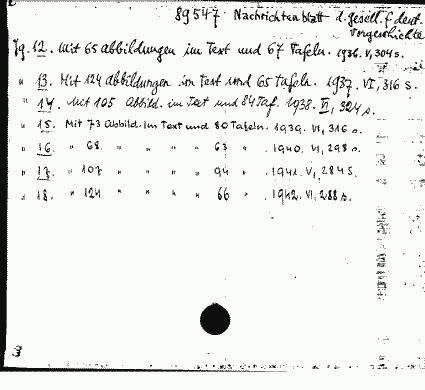 89547 Nachrichtenblatt d. gesell. f. deut.
Vorgeschichte
Jg. 12. Mit 65 abbildungen im Text und 67 Tafeln. 1936. V, 304 s.
" 13. Mit 124 abbildungen im Text und 65 Tafeln. 1937. VI, 316 S.
" 14. Mit 105 Abbild. im Text und 84 Taf. 1938. VI, 324 s.
" 15. Mit 73 Abbild. im Text und 80 Tafeln. 1939. VI, 316 s.
" 16. " 68. " " " " 63 " . 1940. VI, 298 s.
" 17. " 107 " " " " 94 " . 1941. V, 284 S.
" 18. " 124 " " " " 66 " . 1942. VI, 288 s.
3